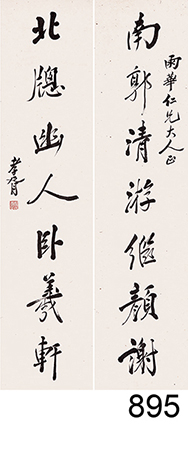 南郭清游繼顏謝
雨華仁兄大人正
北牕幽人卧羲軒
孝胥
895